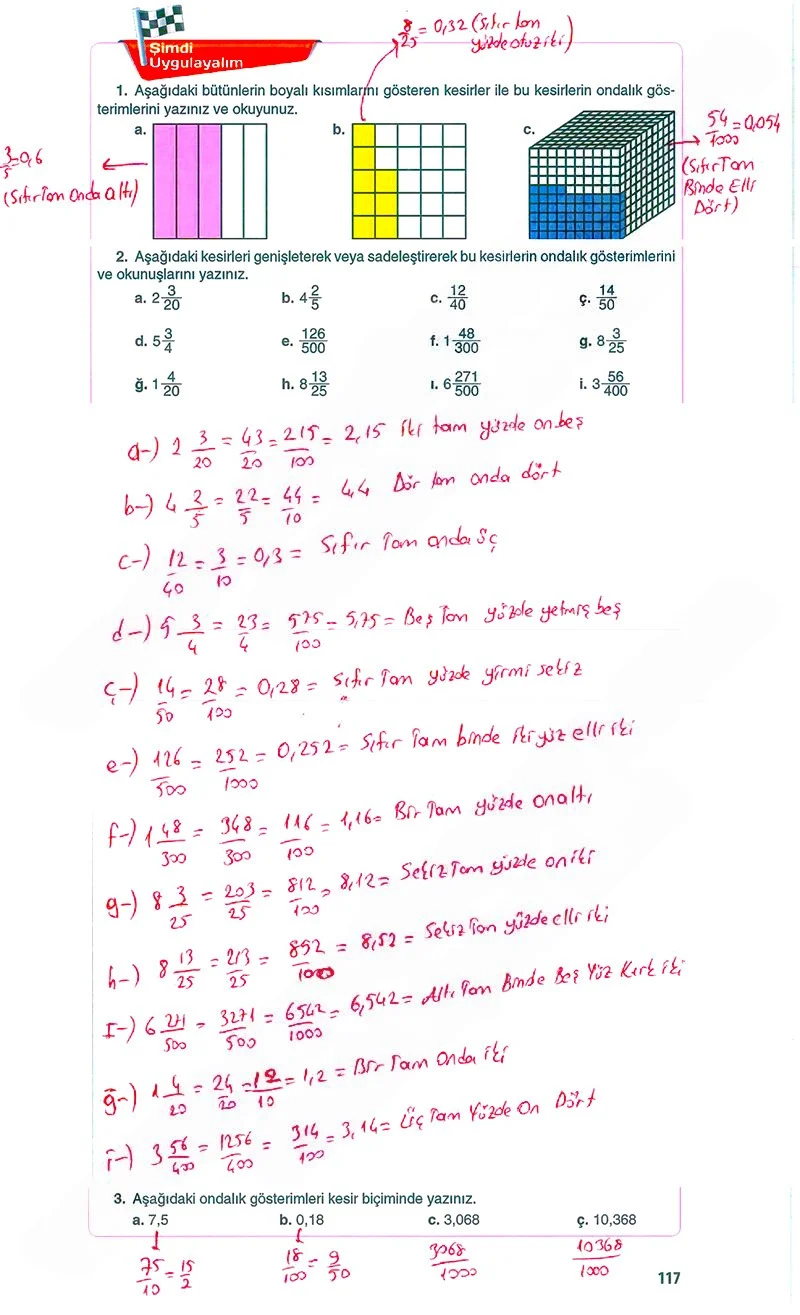 Şimdi
Uygulayalım
8/25 = 0,32 (Sıfır tam
yüzde otuz iki)
1. Aşağıdaki bütünlerin boyalı kısımlarını gösteren kesirler ile bu kesirlerin ondalık gös-
terimlerini yazınız ve okuyunuz.
a.
b.
c.
3/5=0,6
(Sıfır Tam Onda altı)
54/1000=0,054
(Sıfır Tam
Binde Elli
Dört)
2. Aşağıdaki kesirleri genişleterek veya sadeleştirerek bu kesirlerin ondalık gösterimlerini
ve okunuşlarını yazınız.
a. 2 3/20 b. 4 2/5 c. 12/40 ç. 14/50
d. 5 3/4 e. 126/500 f. 1 48/300 g. 8 3/25
ğ. 1 4/20 h. 8 13/25 ı. 6 271/500 i. 3 56/400
a-) 2 3/20 = 43/20 = 215/100 = 2,15 iki tam yüzde on beş
b-) 4 2/5 = 22/5 = 44/10 = 4,4 Dör tam onda dört
c-) 12/40 = 3/10 = 0,3 = Sıfır Tam onda üç
d-) 5 3/4 = 23/4 = 575/100 = 5,75 = Beş Tam yüzde yetmiş beş
ç-) 14/50 = 28/100 = 0,28 = Sıfır Tam yüzde yirmi sekiz
e-) 126/500 = 252/1000 = 0,252 = Sıfır Tam binde iki yüz elli iki
f-) 1 48/300 = 348/300 = 116/100 = 1,16 = Bir Tam yüzde onaltı
g-) 8 3/25 = 203/25 = 812/100 = 8,12 = Sekiz Tam yüzde on iki
h-) 8 13/25 = 213/25 = 852/100 = 8,52 = Sekiz Tam yüzde elli iki
I-) 6 271/500 = 3271/500 = 6542/1000 = 6,542 = Altı Tam Binde Beş Yüz Kırk iki
ğ-) 1 4/20 = 24/20 = 12/10 = 1,2 = Bir Tam Onda iki
i-) 3 56/400 = 1256/400 = 314/100 = 3,14 = Üç Tam Yüzde On Dört
3. Aşağıdaki ondalık gösterimleri kesir biçiminde yazınız.
a. 7,5 b. 0,18 c. 3,068 ç. 10,368
75/10 = 15/2 18/100 = 9/50 3068/1000 10368/1000
117